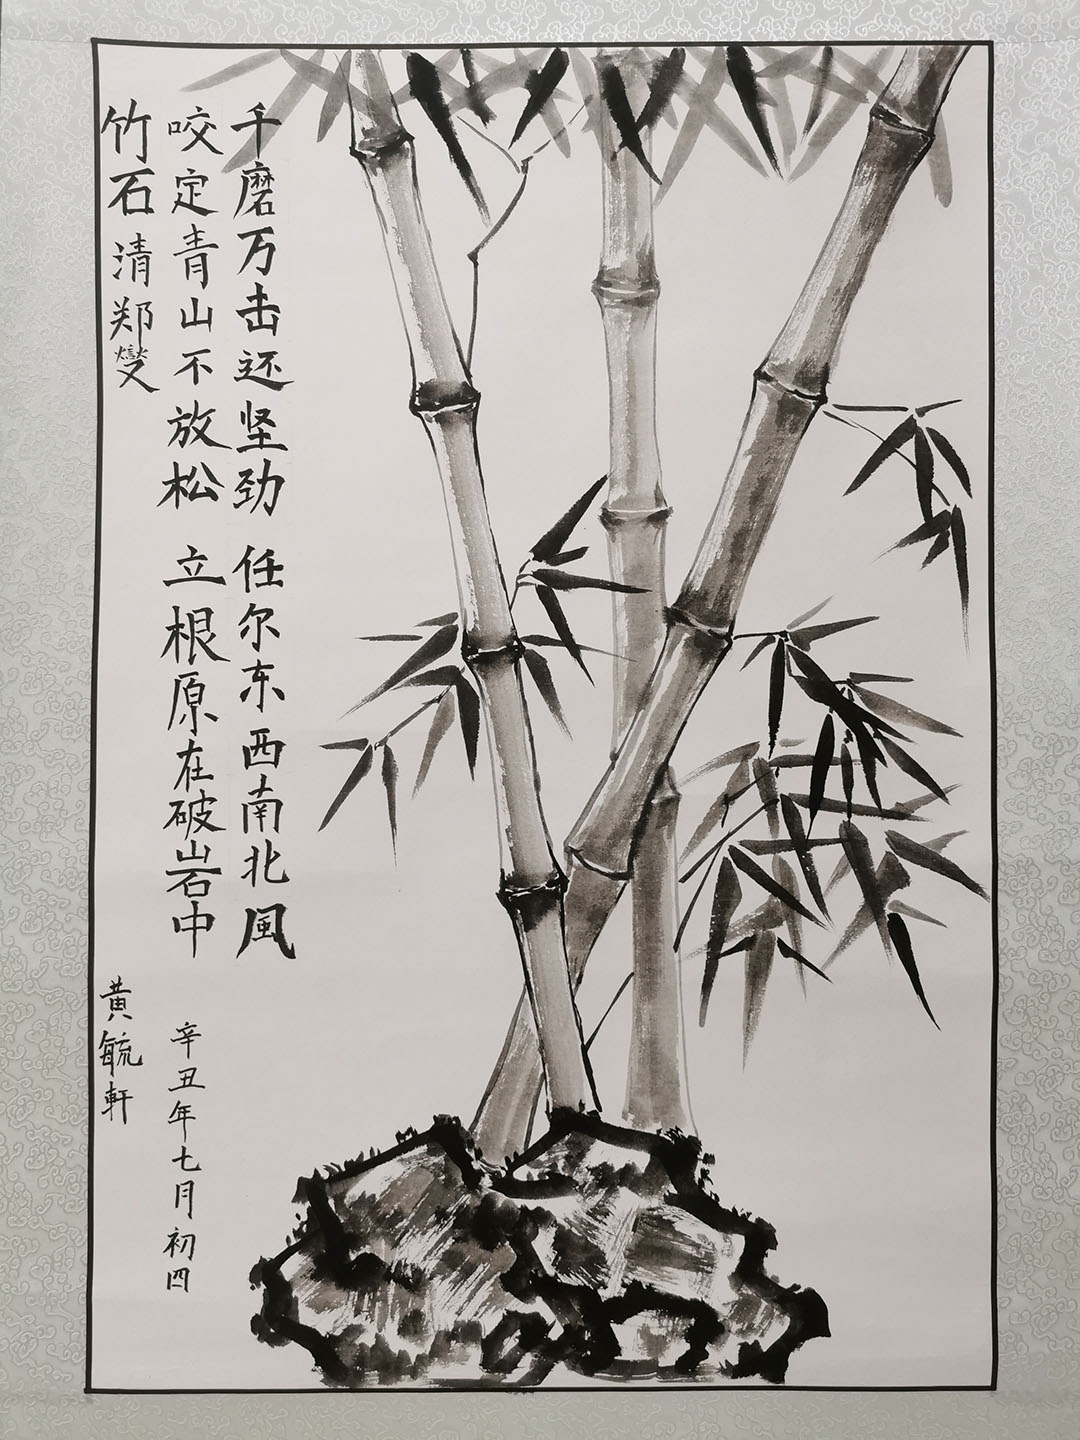 竹石 清 郑燮
咬定青山不放松 立根原在破岩中
千磨万击还坚劲 任尔东西南北風
辛丑年七月初四
黄毓軒